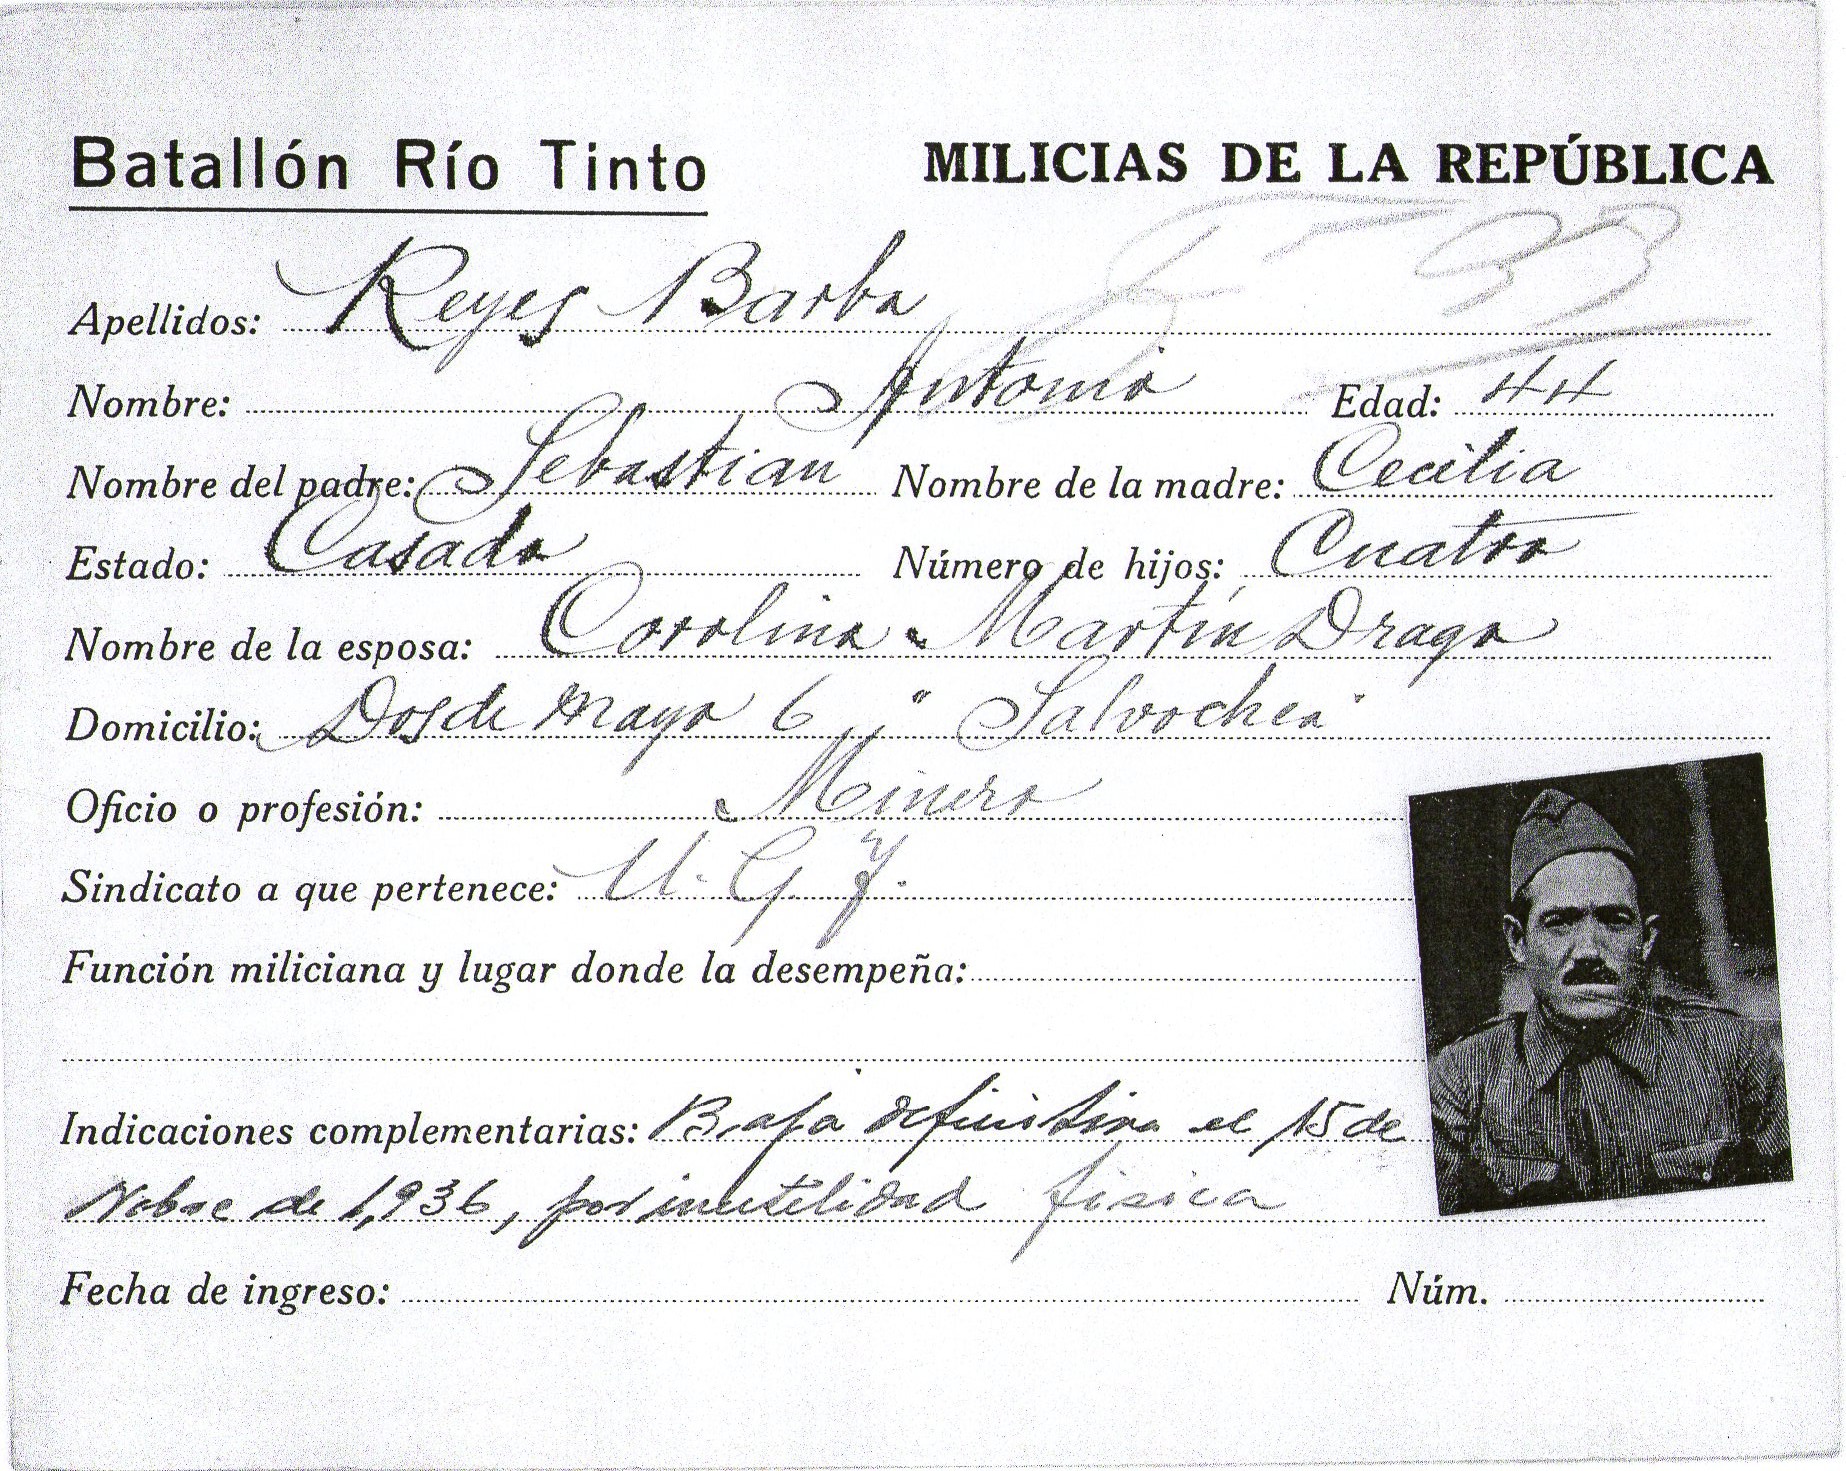 Batallón Río Tinto MILICIAS DE LA REPÚBLICA
Apellidos: Reyes Barba
Nombre: Antonio Edad: 44
Nombre del padre: Sebastian Nombre de la madre: Cecilia
Estado: Casado Número de hijos: Cuatro
Nombre de la esposa: Carolina Martín Drago
Domicilio: Dos de Mayo 6 " Salvochea"
Oficio o profesión: Minero
Sindicato a que pertenece: U. G. T.
Función miliciana y lugar donde la desempeña:
Indicaciones complementarias: Baja definitiva el 15 de
Nobre de 1,936, por inutilidad fisica
Fecha de ingreso: Núm.